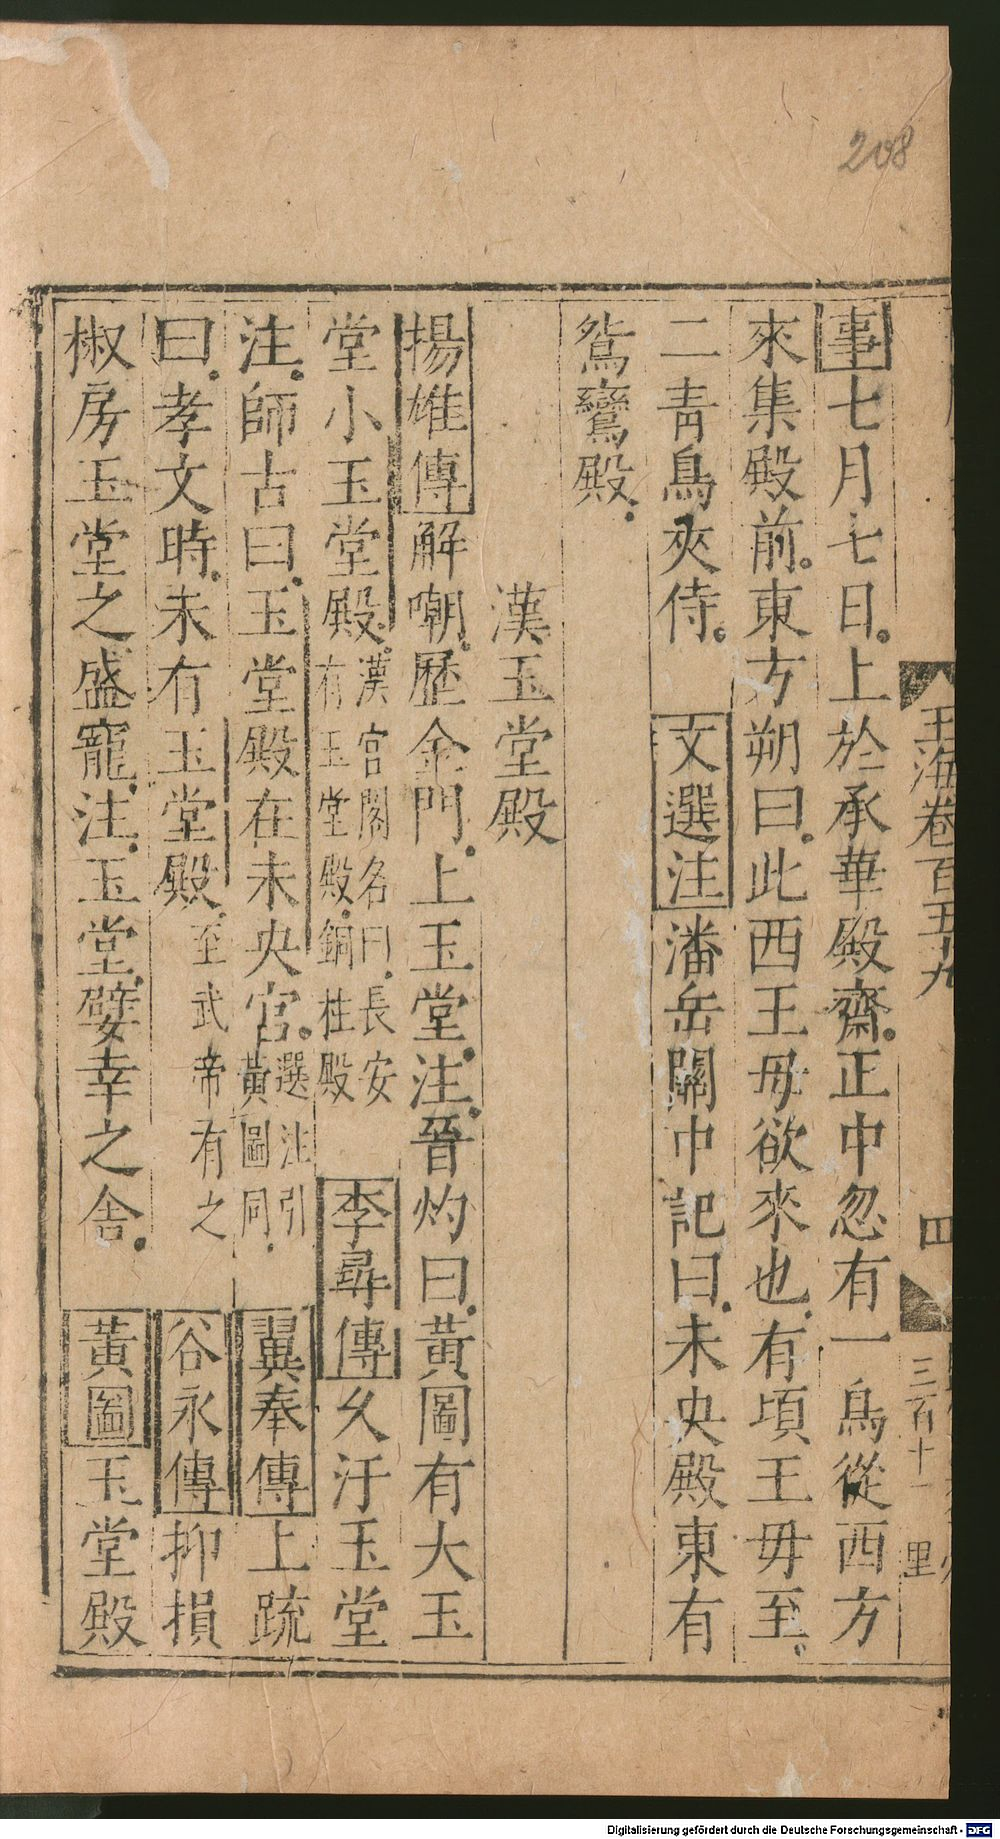 208
玉海卷百五十九
四
三百十一
里
事七月七日上於承華殿齋正中忽有一鳥從西方
來集殿前東方朔曰此西王毋欲來也有頃王毋至
二青鳥夾侍 文選注潘岳關中記曰未央殿東有
鴛鸞殿
漢玉堂殿
揚雄傳解嘲歷金門上玉堂注晉灼曰黃圖有大玉
堂小玉堂殿漢宮閣名曰長安有玉堂殿銅柱殿 李尋傳乆汙玉堂
注師古曰玉堂殿在未央宮選注引黃圖同 翼奉傳上疏
曰孝文時未有玉堂殿至武帝有之 谷永傳抑損
椒房玉堂之盛寵注玉堂嬖幸之舍 黃圖玉堂殿
Digitalisierung gefördert durch die Deutsche Forschungsgemeinschaft - DFG